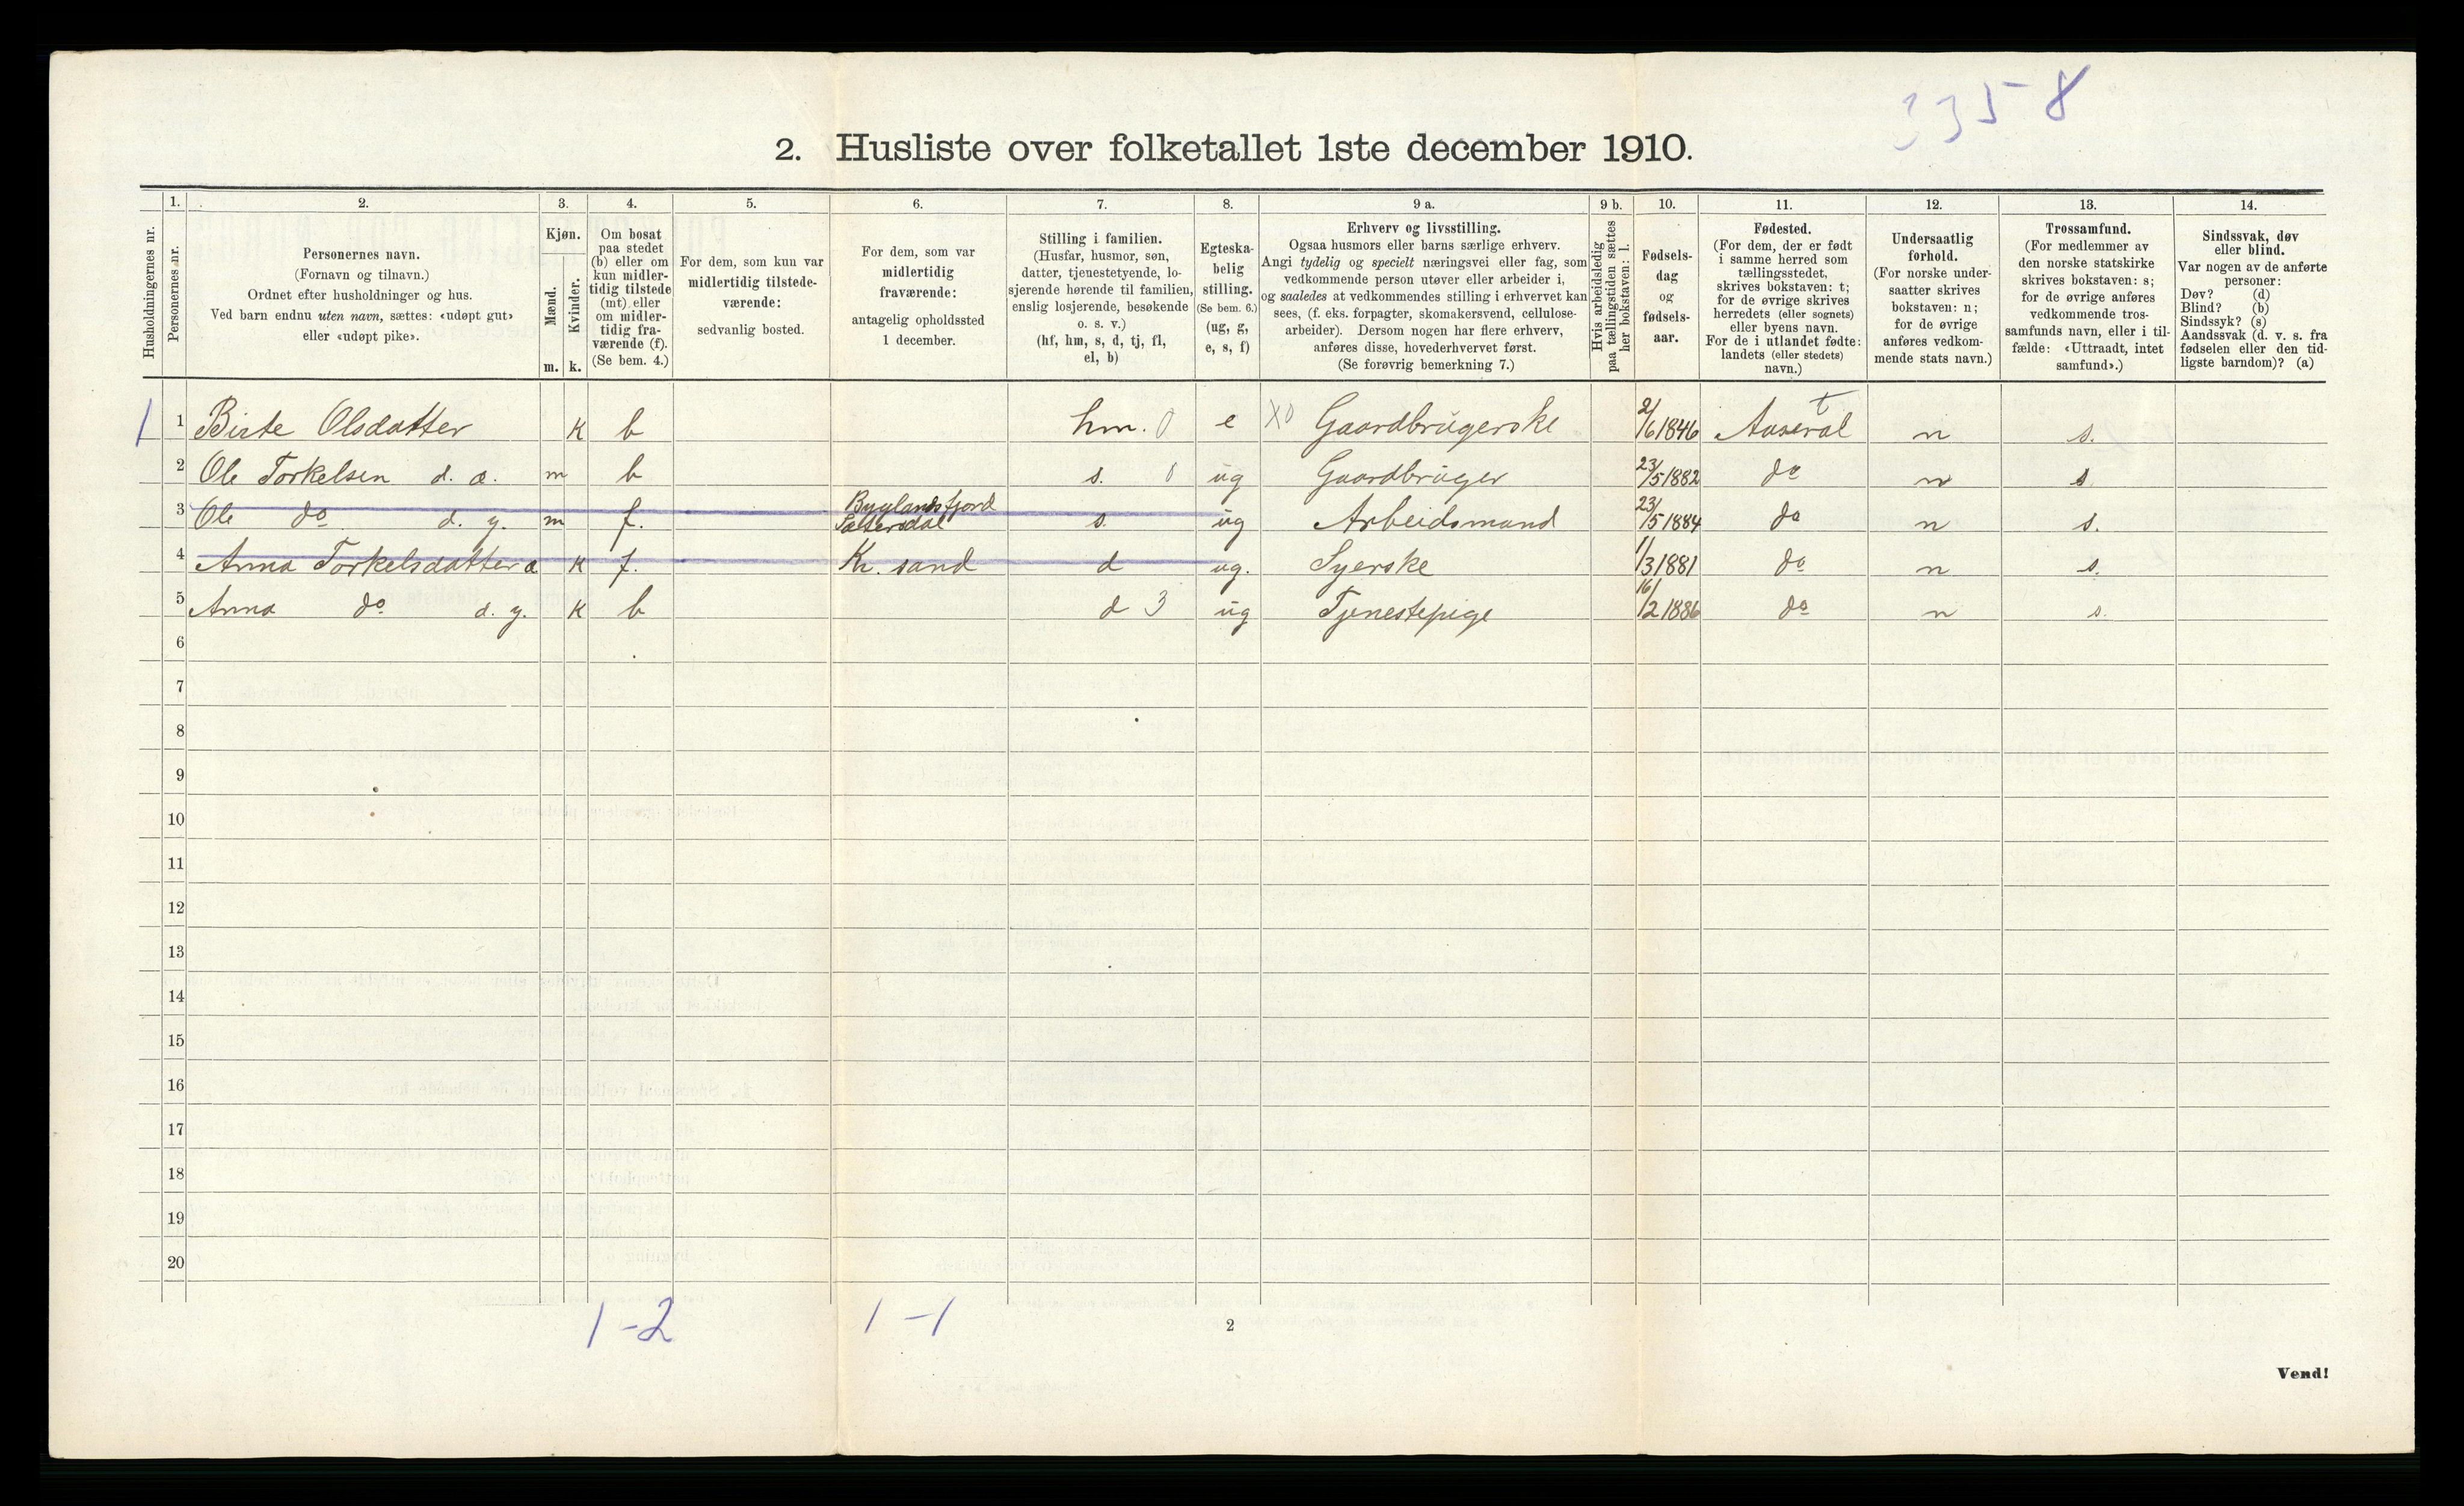 3358
2. Husliste over folketallet 1ste december 1910.
Husholdningernes nr.
1.
Personernes nr.
2.
Personernes navn.
(Fornavn og tilnavn.)
Ordnet efter husholdninger og hus.
Ved barn endnu uten navn, sættes: «udøpt gut»
eller «udøpt pike».
3.
Kjøn.
Mænd.
Kvinder.
m. k.
4.
Om bosat
paa stedet
(b) eller om
kun midler-
tidig tilstede
(mt) eller
om midler-
tidig fra-
værende (f).
(Se bem. 4.)
5.
For dem, som kun var
midlertidig tilstede-
værende:
sedvanlig bosted.
6.
For dem, som var
midlertidig
fraværende:
antagelig opholdssted
1 december.
7.
Stilling i familien.
(Husfar, husmor, søn,
datter, tjenestetyende, lo-
sjerende hørende til familien,
enslig losjerende, besøkende
o. s. v.)
(hf, hm, s, d, tj, fl,
el, b)
8.
Egteska-
belig
stilling.
(Se bem. 6.)
(ug, g,
e, s, f)
9 a.
Erhverv og livsstilling.
Ogsaa husmors eller barns særlige erhverv.
Angi tydelig og specielt næringsvei eller fag, som
vedkommende person utøver eller arbeider i,
og saaledes at vedkommendes stilling i erhvervet kan
sees, (f. eks. forpagter, skomakersvend, cellulose-
arbeider). Dersom nogen har flere erhverv,
anføres disse, hovederhvervet først.
(Se forøvrig bemerkning 7.)
9 b.
Hvis arbeidsledig
paa tællingstiden sættes
her bokstaven: l.
10.
Fødsels-
dag
og
fødsels-
aar.
11.
Fødested.
(For dem, der er født
i samme herred som
tællingsstedet,
skrives bokstaven: t;
for de øvrige skrives
herredets (eller sognets)
eller byens navn.
For de i utlandet fødte:
landets (eller stedets)
navn.)
12.
Undersaatlig
forhold.
(For norske under-
saatter skrives
bokstaven: n;
for de øvrige
anføres vedkom-
mende stats navn.)
13.
Trossamfund.
(For medlemmer av
den norske statskirke
skrives bokstaven: s;
for de øvrige anføres
vedkommende tros-
samfunds navn, eller i til-
fælde: «Uttraadt, intet
samfund».)
14.
Sindssvak, døv
eller blind.
Var nogen av de anførte
personer:
Døv? (d)
Blind? (b)
Sindssyk? (s)
Aandssvak (d. v. s. fra
fødselen eller den tid-
ligste barndom)? (a)
1 1 Birte Olsdatter K b hm. 0 e X0 Gaardbrügerske 2/6 1846 Aaseral t n s.
2 Ole Torkelsen d. æ. m b s. 0 ug Gaardbrüger 23/5 1882 do n s
3 Ole do d. y. m f. Byglandsfjord Sætersdal s. ug Arbeidsmand 23/5 1884 do n s.
4 Anna Torkelsdatter æ K f. Kr. sand d ug. Syerske 1/3 1881 do n s.
5 Anna do d. y. K b d 3 ug Tjenestepige 16/2 1886 do n s.
6
7
8
9
10
11
12
13
14
15
16
17
18
19
20
1 - 2 1 - 1
2
Vend!